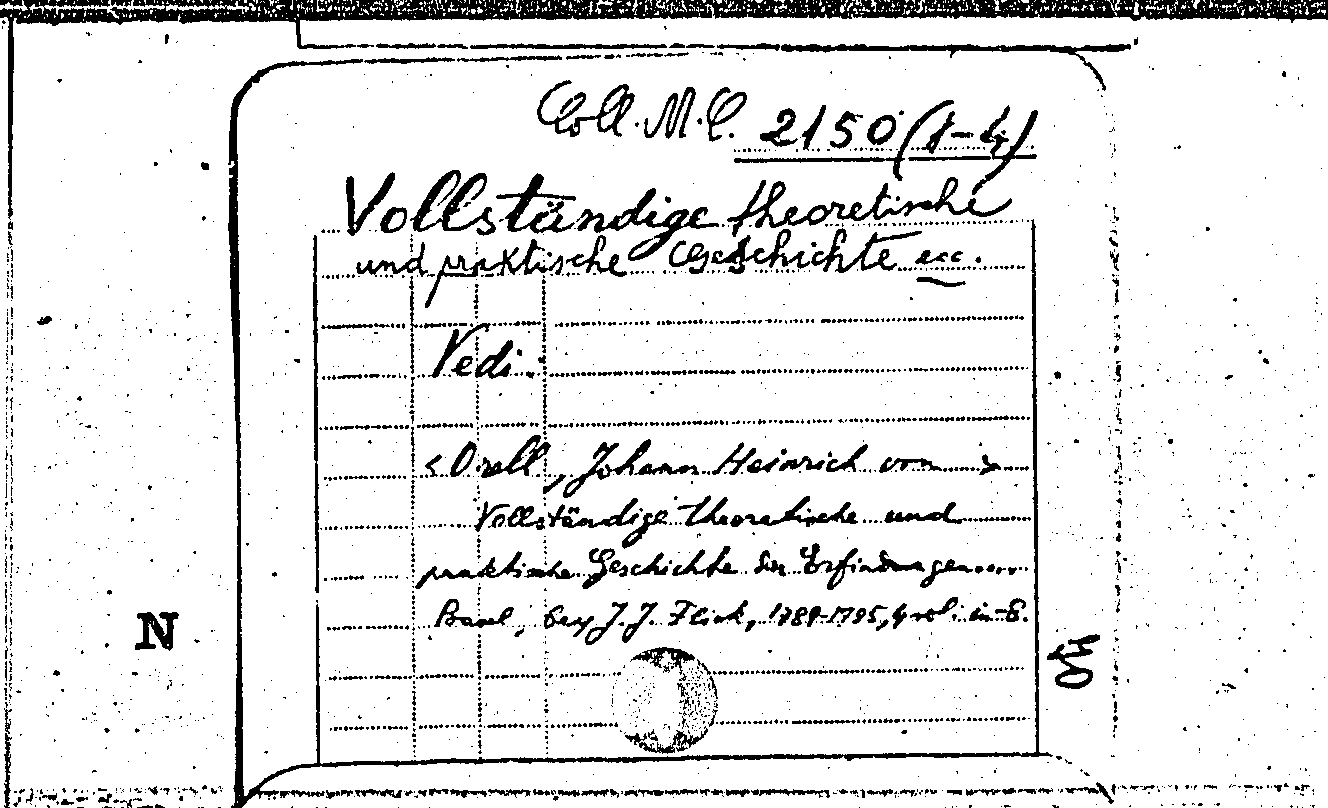 Coll. M. C. 2150 (1-4)
Vollständige theoretische
und praktische Geschichte ecc.
Vedi:
<Orell, Johann Heinrich von>
Vollständige theoretische und
praktische Geschichte der Erfindungen....
Basel, bey J. J. Flick, 1789-1795, 4 vol. in-8.
N